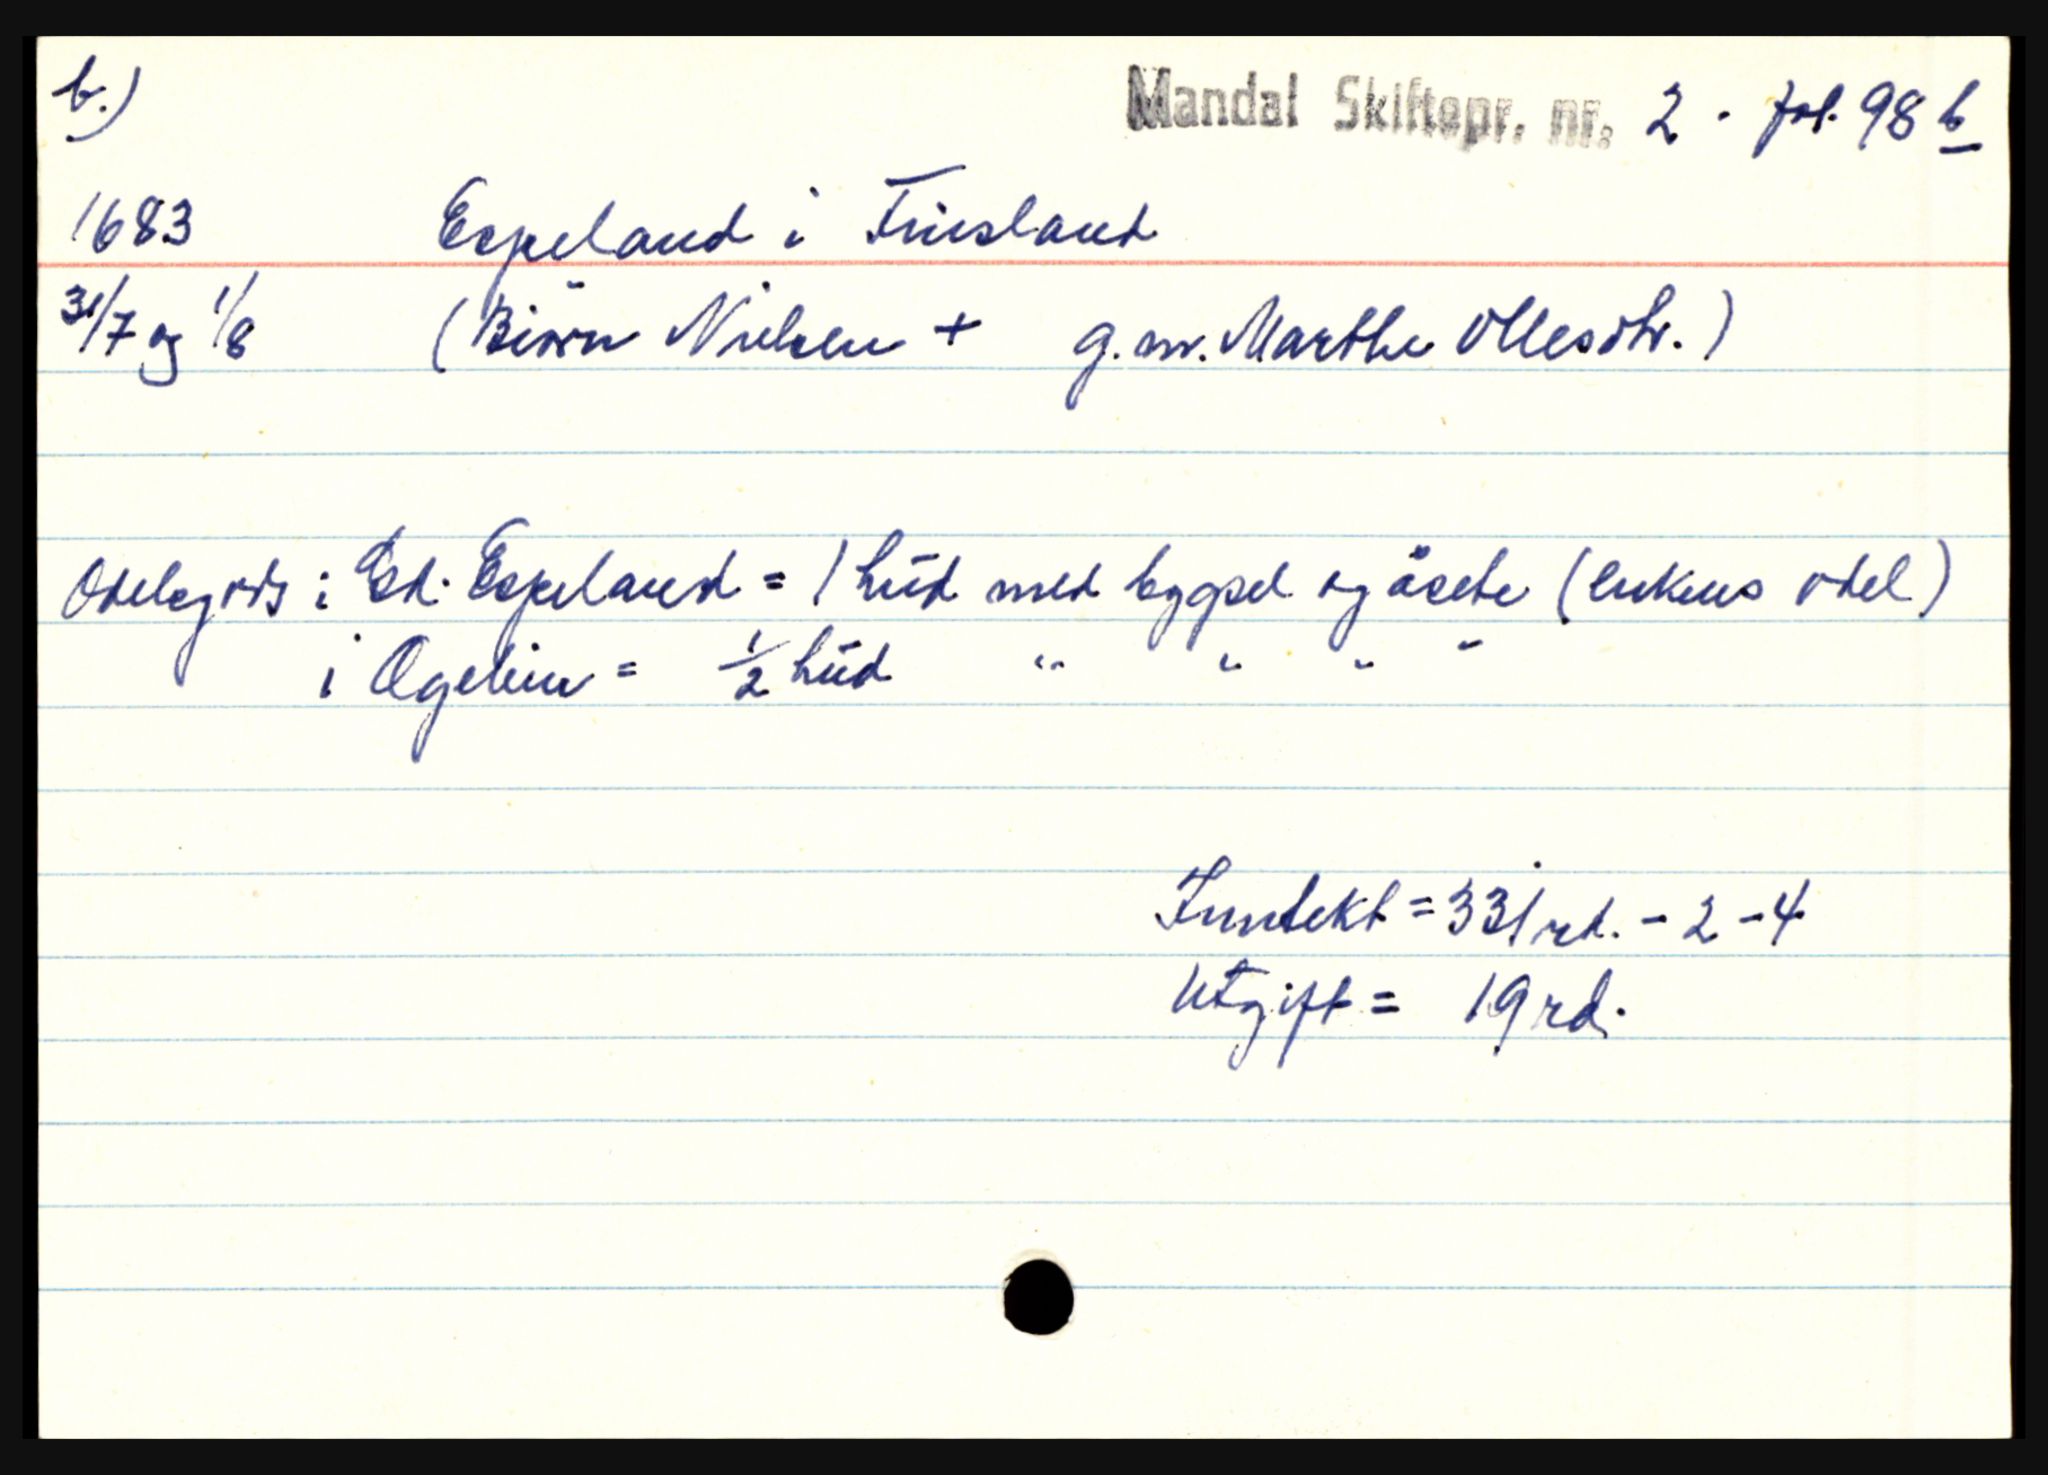 b.)
Mandal Skiftepr. nr. 2 - fol. 98 b
1683 Espeland i Finsland
31/7 og 1/8 (Biørn Nielsen + g.m. Marthe Ollesdtr.)
Odelsgods i Ed. Espeland = 1 hud med bygsel og åsete (enkens odel)
i Øgeliem = 1/2 hud " " " "
Inntekt = 331 rd. - 2 - 4
Utgift = 19 rd.